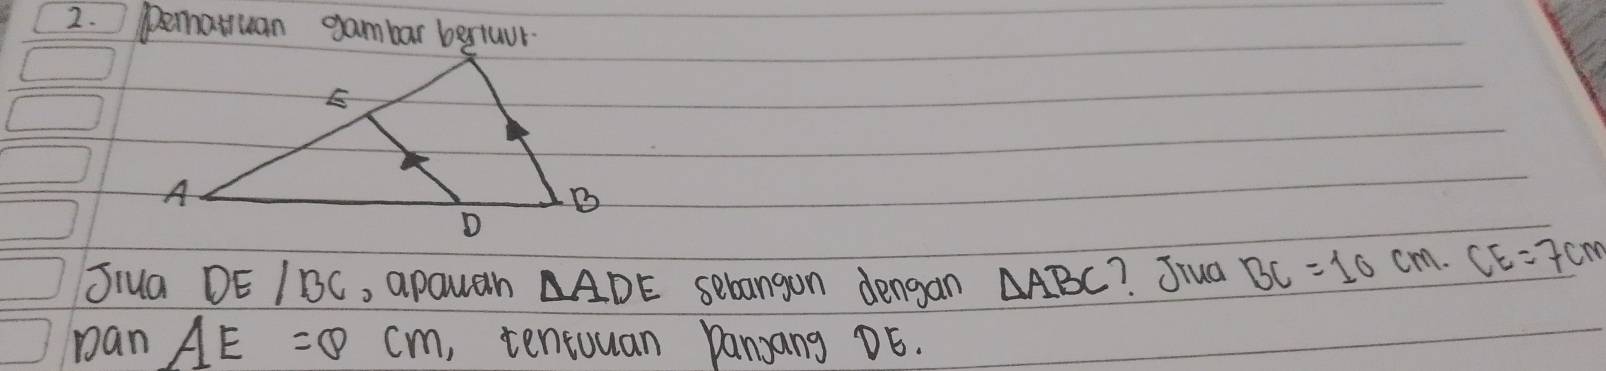 2. Perhatikan gambar berikut.
C
E
A
B
D
Jika DE / BC, apakah ΔADE sebangun dengan ΔABC? Jika BC = 10 cm. CE = 7 cm
Dan AE = 8 cm, tentukan panjang DE.